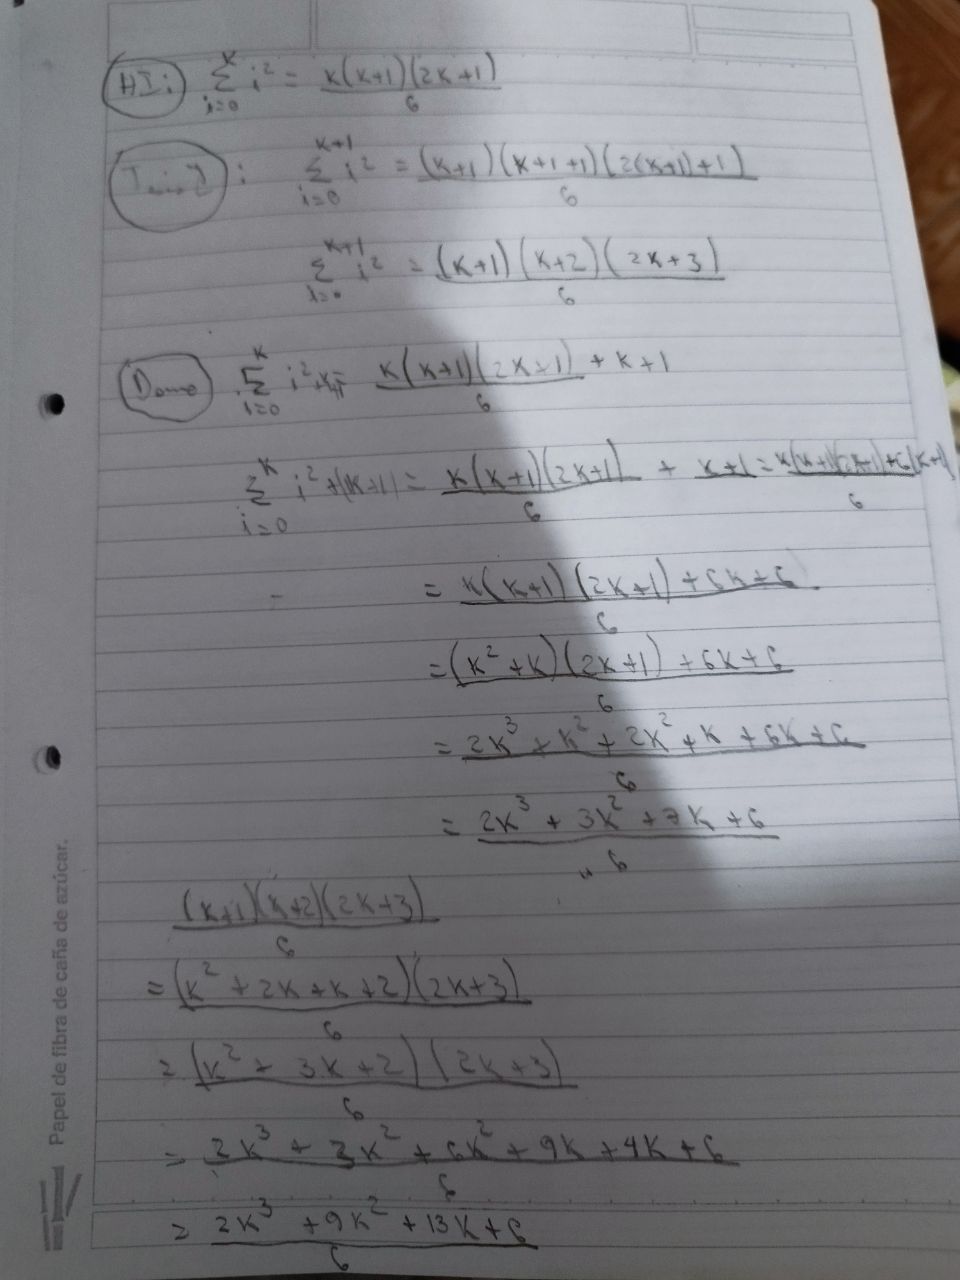 HI: ∑_{i=0}^{K} i² = K(K+1)(2K+1)/6
: ∑_{i=0}^{K+1} i² = (K+1)(K+1+1)(2(K+1)+1)/6
∑_{i=0}^{K+1} i² = (K+1)(K+2)(2K+3)/6
∑_{i=0}^{K} i² = K(K+1)(2K+1)/6 + K+1
∑_{i=0}^{K} i² + (K+1) = K(K+1)(2K+1)/6 + K+1 = K(K+1)(2K+1)+6(K+1)/6
= K(K+1)(2K+1)+6K+6/6
= (K²+K)(2K+1)+6K+6/6
= 2K³+K²+2K²+K+6K+6/6
= 2K³+3K²+7K+6/6
(K+1)(K+2)(2K+3)/6
= (K²+2K+K+2)(2K+3)/6
= (K²+3K+2)(2K+3)/6
= 2K³+3K²+6K²+9K+4K+6/6
= 2K³+9K²+13K+6/6
Papel de fibra de caña de azúcar.